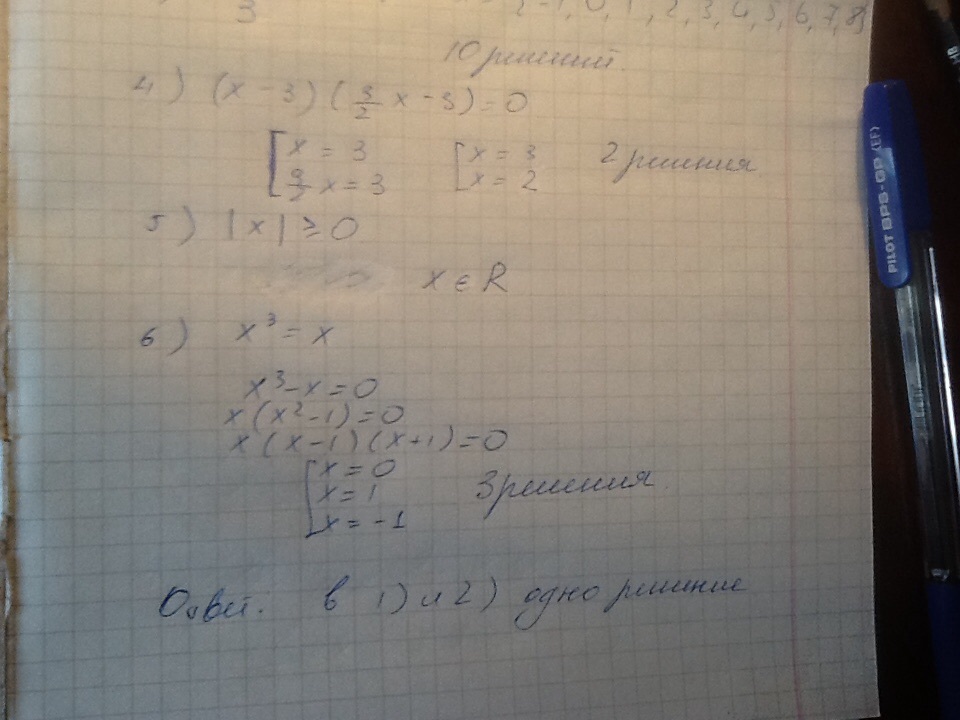 3 {-1, 0, 1, 2, 3, 4, 5, 6, 7, 8}
10 решений.
4) (x - 3) (3/2 x - 3) = 0
[x = 3 [x = 3 2 решения
3/2 x = 3 x = 2
5) |x| ≥ 0
x ∈ R
6) x³ = x
x³ - x = 0
x (x² - 1) = 0
x (x - 1) (x + 1) = 0
[x = 0
x = 1 3 решения.
x = -1
Ответ: в 1) и 2) одно решение
PILOT BPS-GP (EF)
HB